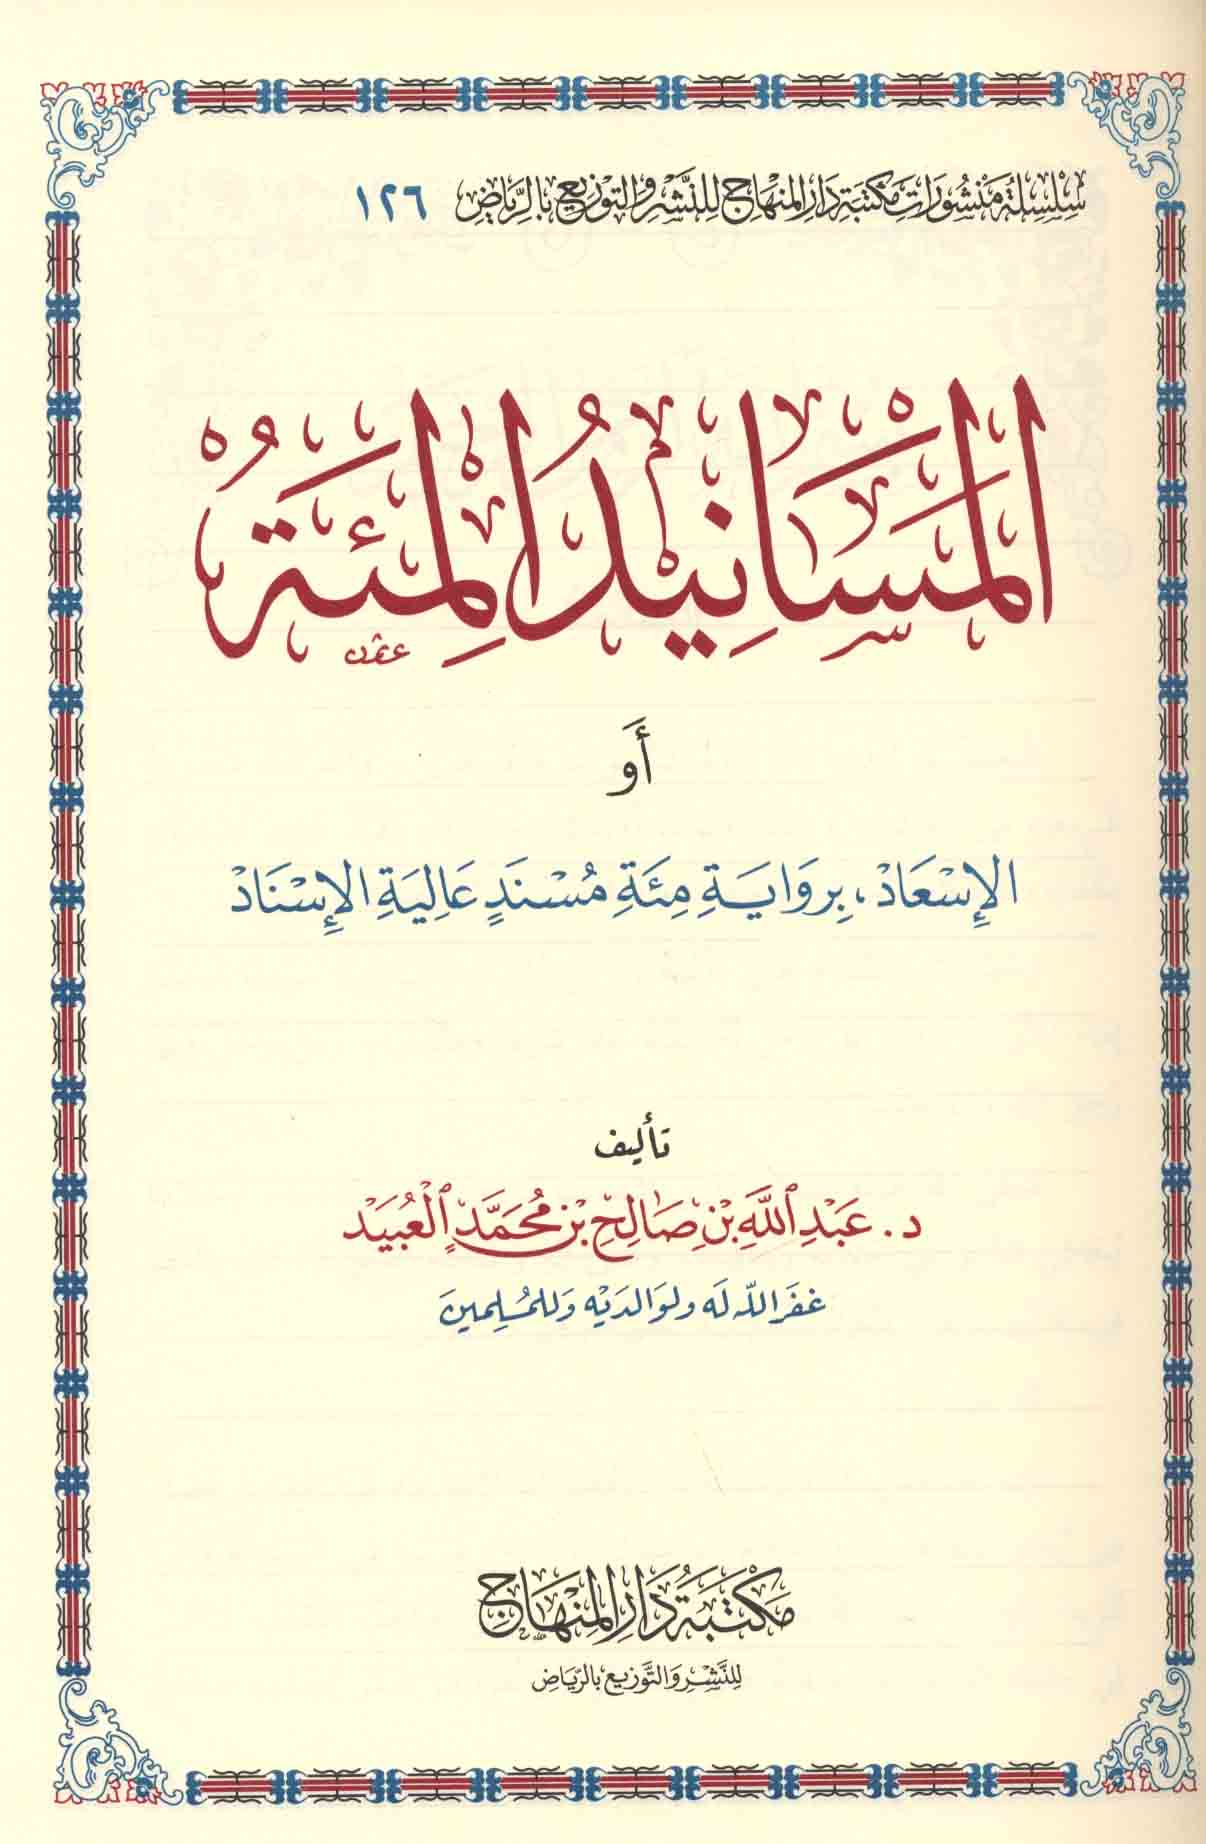 سِلْسِلَة مَنْشُورَات مَكْتَبَة دَارِ المِنْهَاج لِلنَّشْرِ وَالتَّوْزِيع بِالرِّيَاض ١٢٦
المَسَانِيدُ المِئَةُ
أَو
الإِسْعَاد، بِرِوَايَةِ مِئَةِ مُسْنَدٍ عَالِيَةِ الإِسْنَادْ
تأليف
د. عَبْدِ اللَّهِ بْنِ صَالِحِ بْنِ مُحَمَّدٍ الْعُبَيْد
غفَر اللّه لَه ولوَالديْه وَللمُسْلِمينَ
مَكْتَبَةُ دَارِ المِنْهَاج
لِلنَّشْرِ وَالتَّوْزِيع بِالرِّيَاض